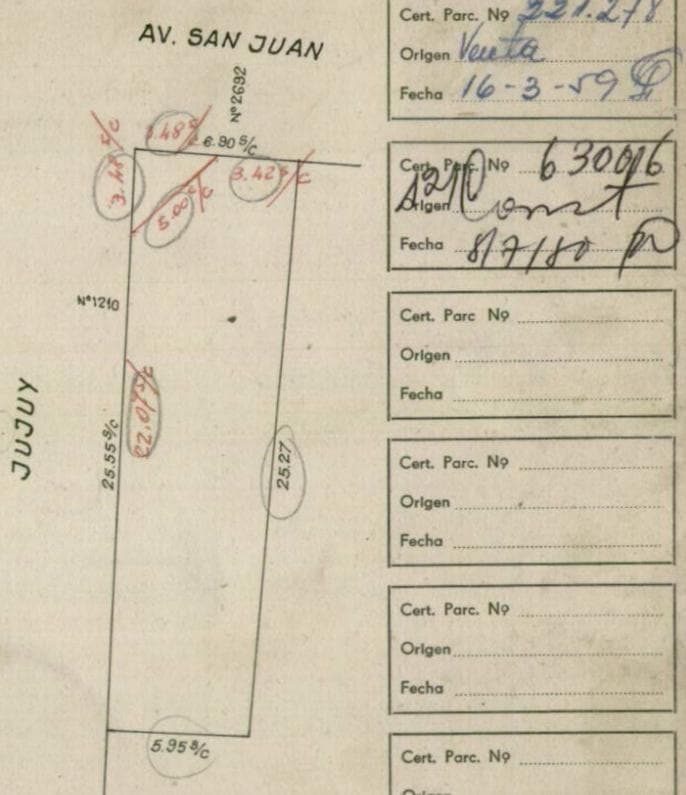 AV. SAN JUAN
Nº2692
6.90 S/C
3.48
S/C
3.42 S/C
5.00 S/C
Nº1210
JUJUY
25.55 S/C
22.07 S/C
25.27
5.95 S/C
Cert. Parc. Nº 221.278
Origen Venta
Fecha 16-3-59
Cert. Parc. Nº 630016
1210
Origen Const
Fecha 8/7/80
Cert. Parc Nº
Origen
Fecha
Cert. Parc. Nº
Origen
Fecha
Cert. Parc. Nº
Origen
Fecha
Cert. Parc. Nº
Origen